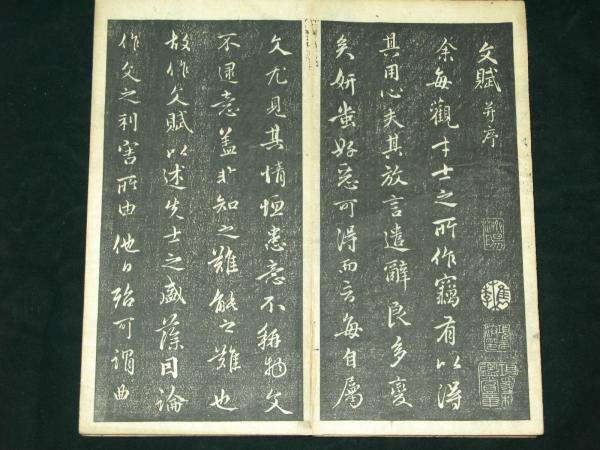 文賦 并序
余每觀才士之所作竊有以得
其用心夫其放言遣辭良多變
矣妍蚩好惡可得而言每自屬
文尤見其情恒患意不稱物文
不逮意蓋非知之難能之難也
故作文賦以述先士之盛藻因論
作文之利害所由他日殆可謂曲